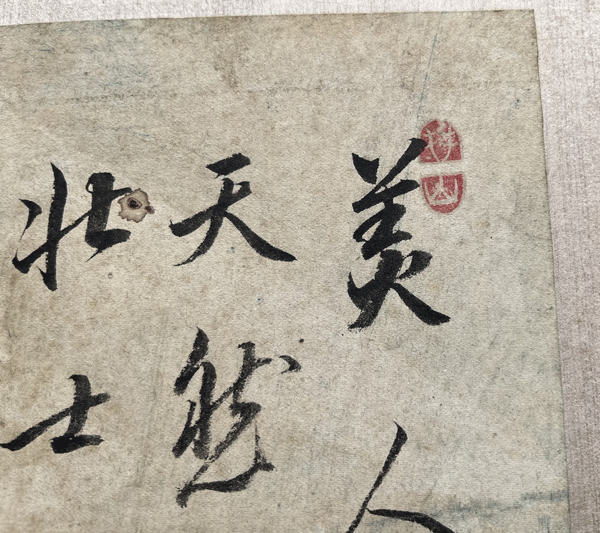 美人
天然
壮士